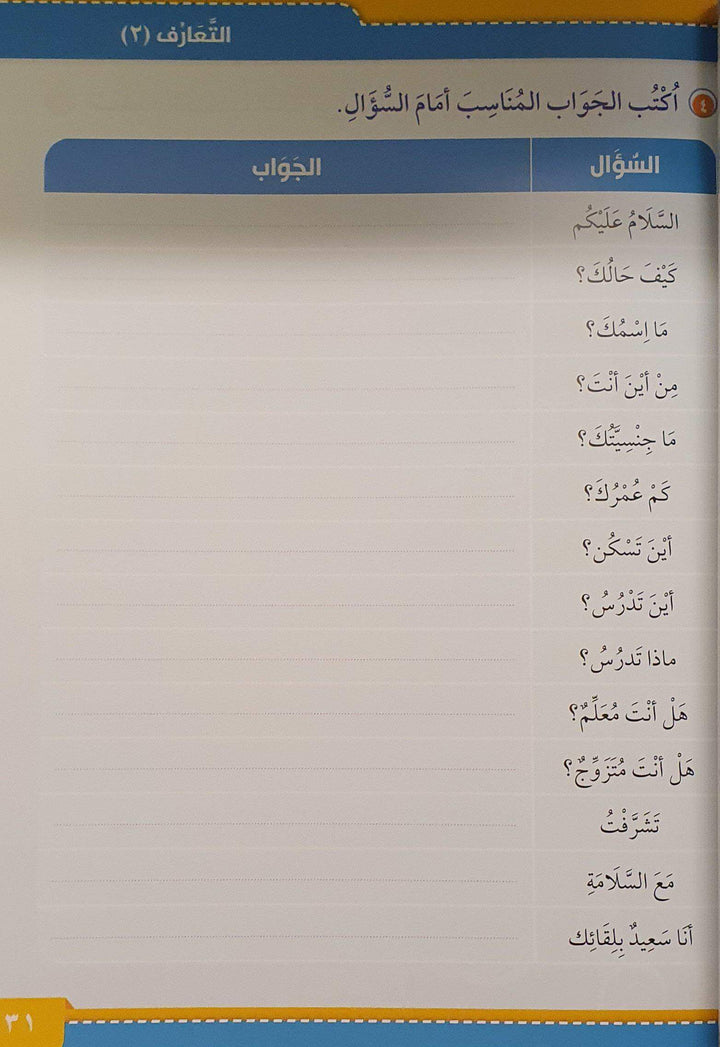 التَّعَارُف (٢)
٤ اُكْتُب الجَوَاب المُنَاسِبَ أمَامَ السُّؤَالِ.
السُّؤَال الجَوَاب
السَّلَامُ عَلَيْكُم
كَيْفَ حَالُكَ؟
مَا اِسْمُكَ؟
مِنْ أيْنَ أنْتَ؟
مَا جِنْسِيَّتُكَ؟
كَمْ عُمْرُكَ؟
أيْنَ تَسْكُن؟
أيْنَ تَدْرُسُ؟
ماذا تَدرُسُ؟
هَلْ أنْتَ مُعَلِّمٌ؟
هَلْ أنْتَ مُتَزَوِّجٌ؟
تَشَرَّفْتُ
مَعَ السَّلَامَةِ
أنَا سَعِيدٌ بِلِقَائِك
٣١